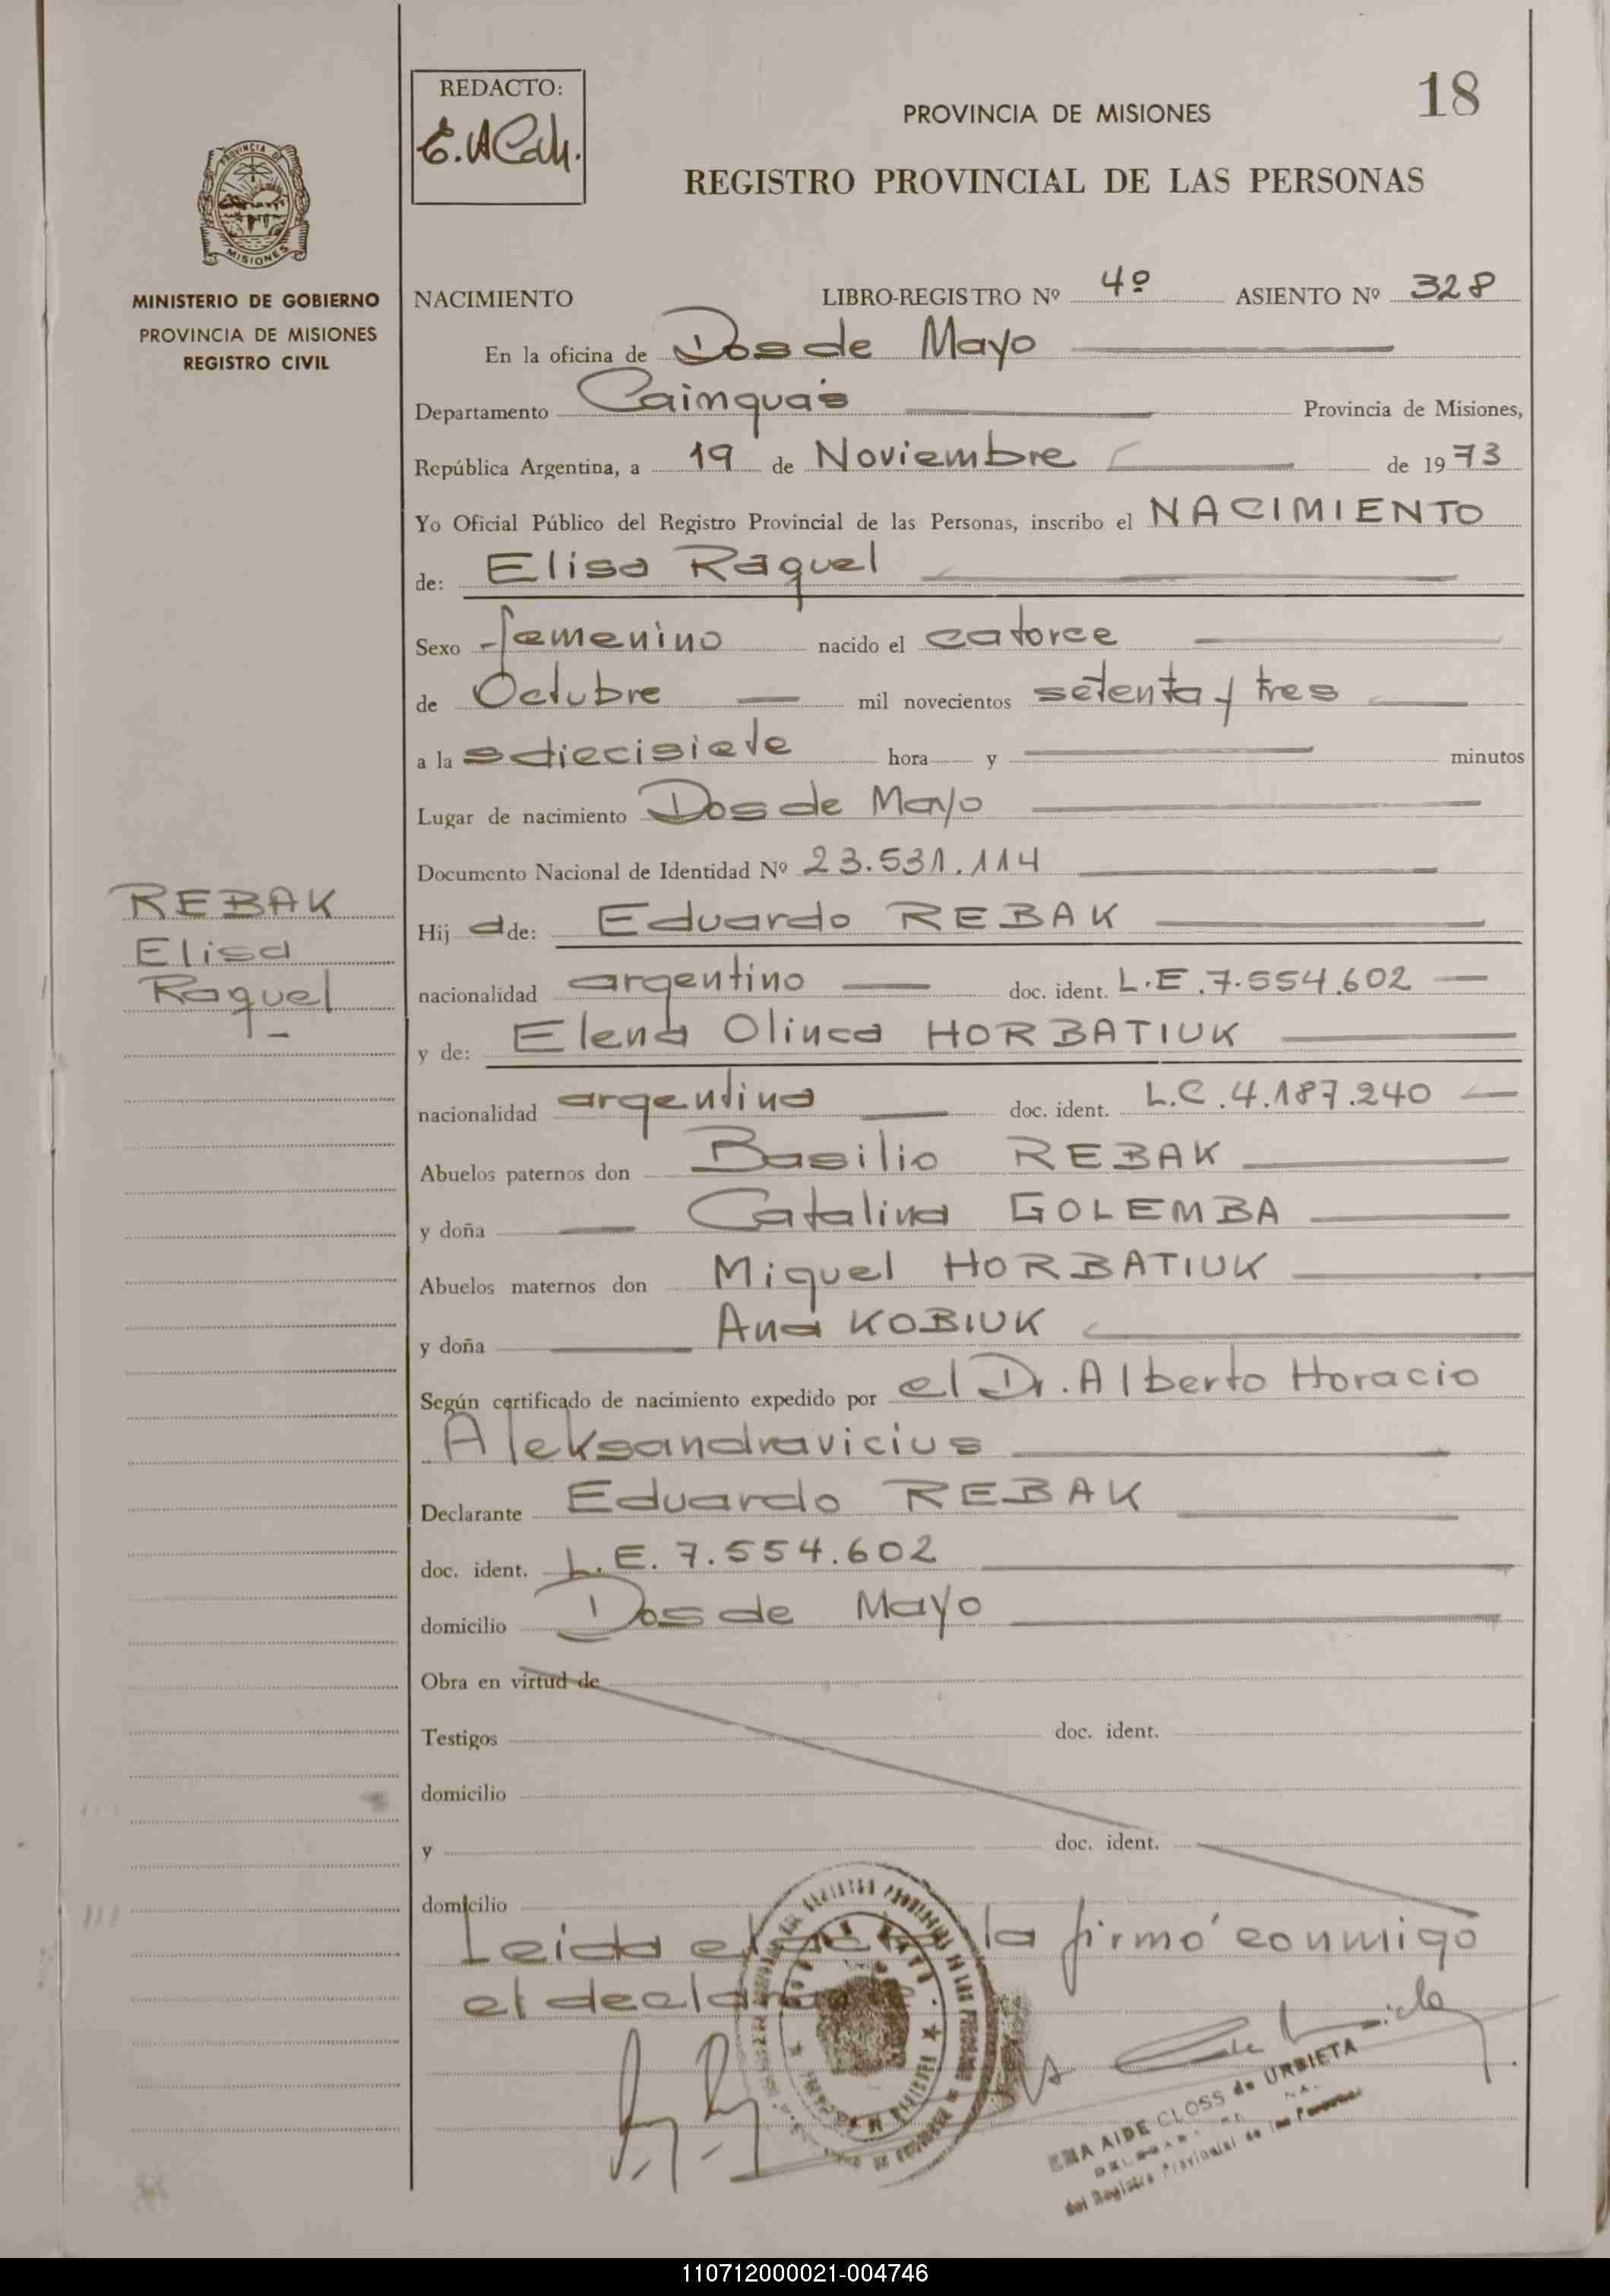 18
REDACTO:
E. A Cah.
PROVINCIA DE MISIONES
REGISTRO PROVINCIAL DE LAS PERSONAS
PROVINCIA DE
MISIONES
MINISTERIO DE GOBIERNO
PROVINCIA DE MISIONES
REGISTRO CIVIL
NACIMIENTO LIBRO-REGISTRO Nº 4º ASIENTO Nº 328
En la oficina de Dos de Mayo
Departamento Cainguás Provincia de Misiones,
República Argentina, a 19 de Noviembre de 1973
Yo Oficial Público del Registro Provincial de las Personas, inscribo el NACIMIENTO
de: Elisa Raquel
Sexo femenino nacido el catorce
de Octubre mil novecientos setenta y tres
a la s diecisiete hora y minutos
Lugar de nacimiento Dos de Mayo
Documento Nacional de Identidad Nº 23.531.114
REBAK
Elisa
Raquel
Hij a de: Eduardo REBAK
nacionalidad argentino doc. ident. L.E. 7.554.602
y de: Elena Olinca HORBATIUK
nacionalidad argentina doc. ident. L.C. 4.187.240
Abuelos paternos don Basilio REBAK
y doña Catalina GOLEMBA
Abuelos maternos don Miguel HORBATIUK
y doña Ana KOBIUK
Según certificado de nacimiento expedido por el Dr. Alberto Horacio
Aleksandravicius
Declarante Eduardo REBAK
doc. ident. L.E. 7.554.602
domicilio Dos de Mayo
Obra en virtud de
Testigos doc. ident.
domicilio
y doc. ident.
domicilio
Leida el acta la firmó conmigo
el declarante
AIDE CLOSS de URBIETA
del Registro Provincial de las Personas
110712000021-004746